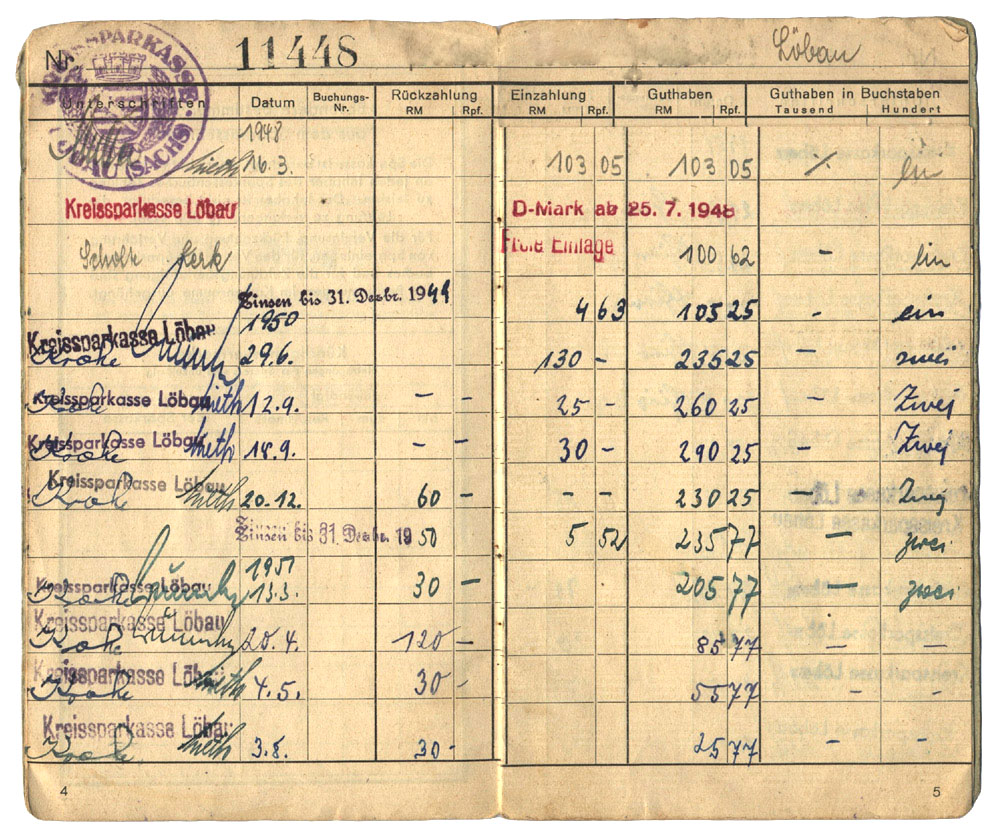 Nr. 11448 Löbau
KREISSPARKASSE LÖBAU (SACHS)
Unterschriften Datum Buchungs-Nr. Rückzahlung RM Rpf. Einzahlung RM Rpf. Guthaben RM Rpf. Guthaben in Buchstaben Tausend Hundert
1948
16.3. 103 05 103 05 ein
Kreissparkasse Löbau D-Mark ab 25. 7. 1948
Freie Einlage
100 62 – ein
Zinsen bis 31. Dezbr. 1949 4 63 105 25 – ein
1950
Kreissparkasse Löbau 29.6. 130 – 235 25 – zwei
Kreissparkasse Löbau 12.9. – – 25 – 260 25 – Zwei
Kreissparkasse Löbau 18.9. – – 30 – 290 25 Zwei
Kreissparkasse Löbau 20.12. 60 – – – 230 25 – Zwei
Zinsen bis 31. Dezbr. 1950 5 52 235 77 – zwei
1951
Kreissparkasse Löbau 13.3. 30 – 205 77 – zwei
Kreissparkasse Löbau 20.4. 120 – 85 77 – –
Kreissparkasse Löbau 4.5. 30 – 55 77 – –
Kreissparkasse Löbau 3.8. 30 – 25 77 – –
4 5